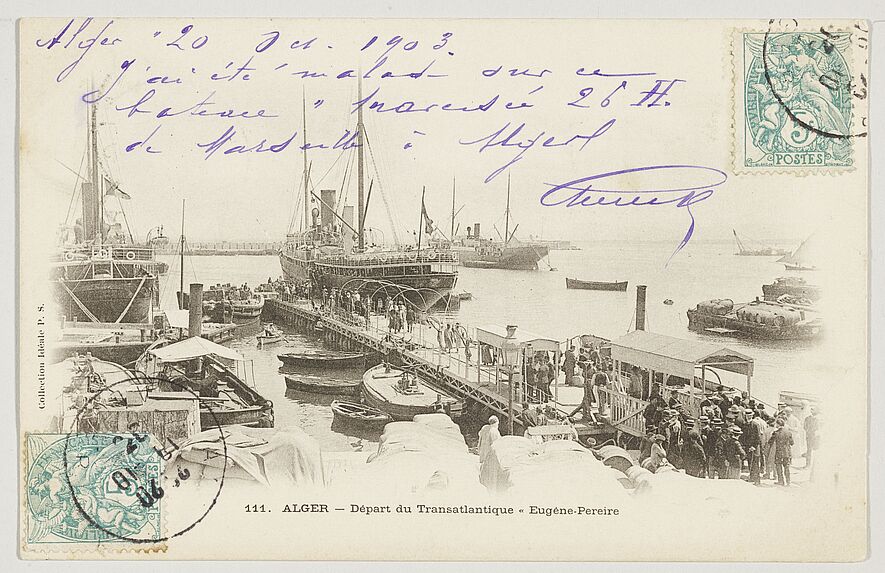 Alger " 20 Oct. 1903.
J'ai été malade sur ce
bateau " traversée 26 H.
de Marseille à Alger
5c
POSTES
Collection Idéale P. S.
RÉPUBLIQUE FRANÇAISE
111. ALGER — Départ du Transatlantique « Eugéne-Pereire